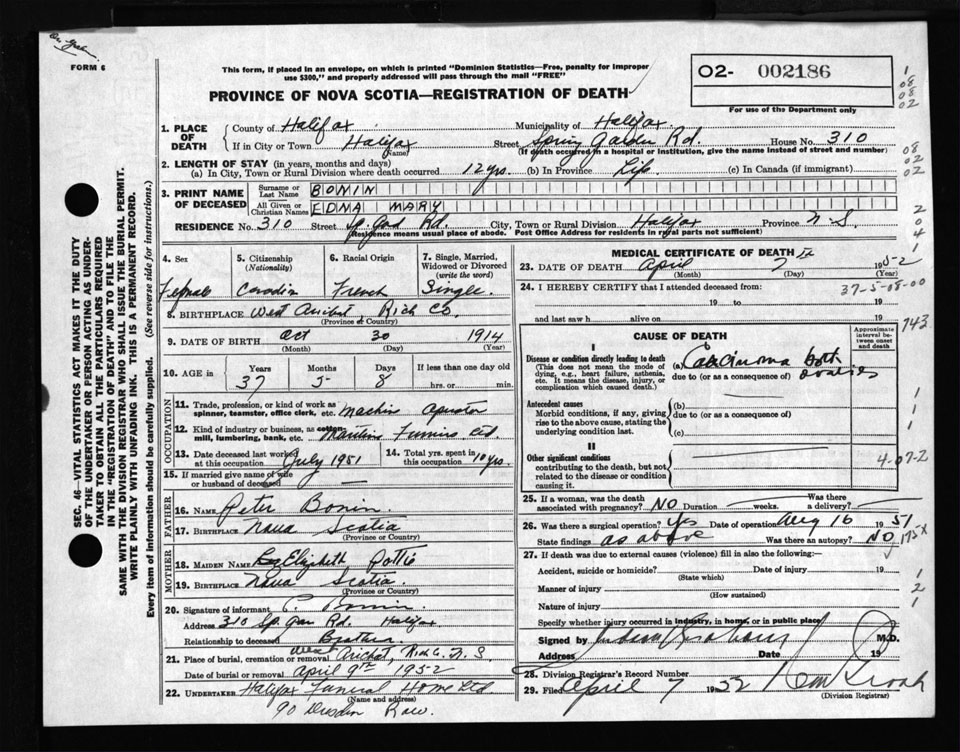 FORM 6
This form, if placed in an envelope, on which is printed "Dominion Statistics—Free, penalty for improper
use $300," and properly addressed will pass through the mail "FREE"
PROVINCE OF NOVA SCOTIA—REGISTRATION OF DEATH
02- 002186
For use of the Department only
1. PLACE OF DEATH { County of Halifax Municipality of Halifax
If in City or Town Halifax (Name) Street Spring Garden Rd. House No. 310
(If death occurred in a hospital or institution, give the name instead of street and number)
2. LENGTH OF STAY (in years, months and days)
(a) In City, Town or Rural Division where death occurred 12 yrs. (b) In Province Life (c) In Canada (if immigrant)
3. PRINT NAME OF DECEASED { Surname or Last Name BONIN
All Given or Christian Names EDNA MARY
RESIDENCE No. 310 Street Sp. Gad Rd. City, Town or Rural Division Halifax Province N.S.
(Residence means usual place of abode. Post Office Address for residents in rural parts not sufficient)
4. Sex
Female
5. Citizenship (Nationality)
Canadin
6. Racial Origin
French
7. Single, Married, Widowed or Divorced (write the word)
Single.
8. BIRTHPLACE West Arichat, Rich Co.
(Province or Country)
9. DATE OF BIRTH Oct 30 1914
(Month) (Day) (Year)
10. AGE in Years Months Days If less than one day old
37 5 8 hrs. or min.
OCCUPATION
11. Trade, profession, or kind of work as spinner, teamster, office clerk, etc. Machin
12. Kind of industry or business, as cotton mill, lumbering, bank, etc.
13. Date deceased last worked at this occupation July 1951
14. Total yrs. spent in this occupation 10 yrs.
15. If married give name of wife or husband of deceased
FATHER
16. NAME Peter Bonin
17. BIRTHPLACE Nova Scotia
(Province or Country)
MOTHER
18. MAIDEN NAME Elizabeth Pottie
19. BIRTHPLACE Nova Scotia
(Province or Country)
20. Signature of informant P. Bonin.
Address 310 Sp. Gar Rd. Halifax
Relationship to deceased Brother
21. Place of burial, cremation or removal West Arichat, Rich Co. N.S.
Date of burial or removal April 9th 1952
22. UNDERTAKER Halifax Funeral Home Ltd
(Name and address)
90 Row.
MEDICAL CERTIFICATE OF DEATH
23. DATE OF DEATH April 7 1952
(Month) (Day) (Year)
24. I HEREBY CERTIFY that I attended deceased from:
37-5-08-00
19 to 19
and last saw h alive on 19
743
CAUSE OF DEATH
Approximate interval between onset and death
I
Disease or condition directly leading to death
(This does not mean the mode of dying, e.g., heart failure, asthenia, etc. It means the disease, injury, or complication which caused death.)
(a) Carcinoma both ovaries
due to (or as a consequence of)
Antecedent causes
Morbid conditions, if any, giving rise to the above cause, stating the underlying condition last.
(b)
due to (or as a consequence of)
(c)
II
Other significant conditions
contributing to the death, but not related to the disease or condition causing it.
4-07-2
25. If a woman, was the death associated with pregnancy? NO Duration weeks. Was there a delivery?
26. Was there a surgical operation? Yes Date of operation Aug 16 1951
State findings as above Was there an autopsy? NO
175X
27. If death was due to external causes (violence) fill in also the following:—
Accident, suicide or homicide? Date of injury 19
(State which)
Manner of injury
(How sustained)
Nature of injury
Specify whether injury occurred in industry, in home, or in public place
Signed by M.D.
Address Date 19
28. Division Registrar's Record Number
29. Filed April 7 1952
(Division Registrar)
SEC. 46—VITAL STATISTICS ACT MAKES IT THE DUTY
OF THE UNDERTAKER OR PERSON ACTING AS UNDER-
TAKER TO OBTAIN ALL THE PARTICULARS REQUIRED
IN THE "REGISTRATION OF DEATH" AND TO FILE THE
SAME WITH THE DIVISION REGISTRAR WHO SHALL ISSUE THE BURIAL PERMIT.
WRITE PLAINLY WITH UNFADING INK. THIS IS A PERMANENT RECORD.
Every item of information should be carefully supplied. (See reverse side for instructions.)